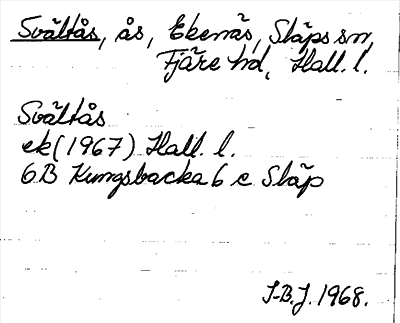 Svältås, ås, Ekenäs, Släps sn,
Fjäre hd, Hall. l.
Svältås
ek (1967) Hall. l.
6B Kungsbacka 6 c Släp
I-B.J. 1968.